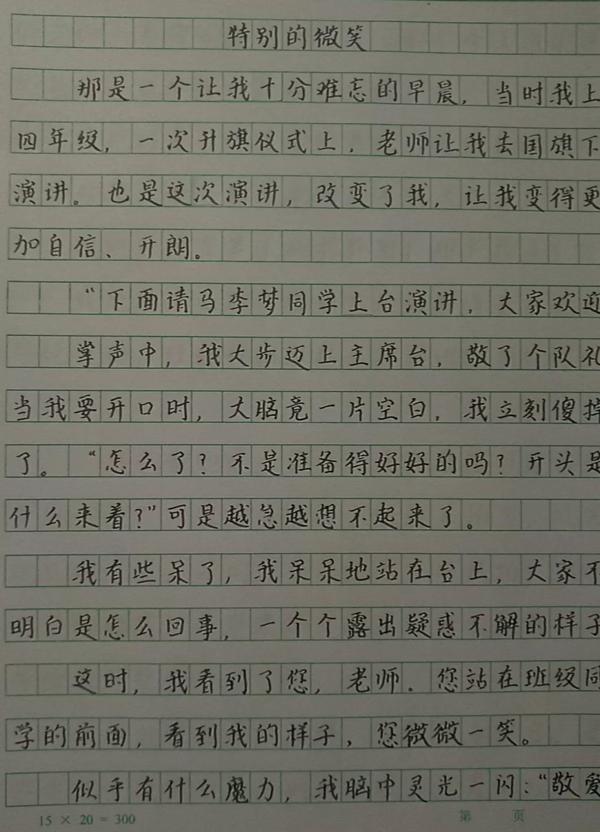 特别的微笑
那是一个让我十分难忘的早晨，当时我上
四年级，一次升旗仪式上，老师让我去国旗下
演讲。也是这次演讲，改变了我，让我变得更
加自信、开朗。
“下面请马李梦同学上台演讲，大家欢迎
掌声中，我大步迈上主席台，敬了个队礼
当我要开口时，大脑竟一片空白，我立刻傻掉
了。“怎么了？不是准备得好好的吗？开头是
什么来着？”可是越急越想不起来了。
我有些呆了，我呆呆地站在台上，大家不
明白是怎么回事，一个个露出疑惑不解的样子
这时，我看到了您，老师．您站在班级同
学的前面，看到我的样子，您微微一笑。
似乎有什么魔力，我脑中灵光一闪：“敬爱
15 × 20 = 300 第 页